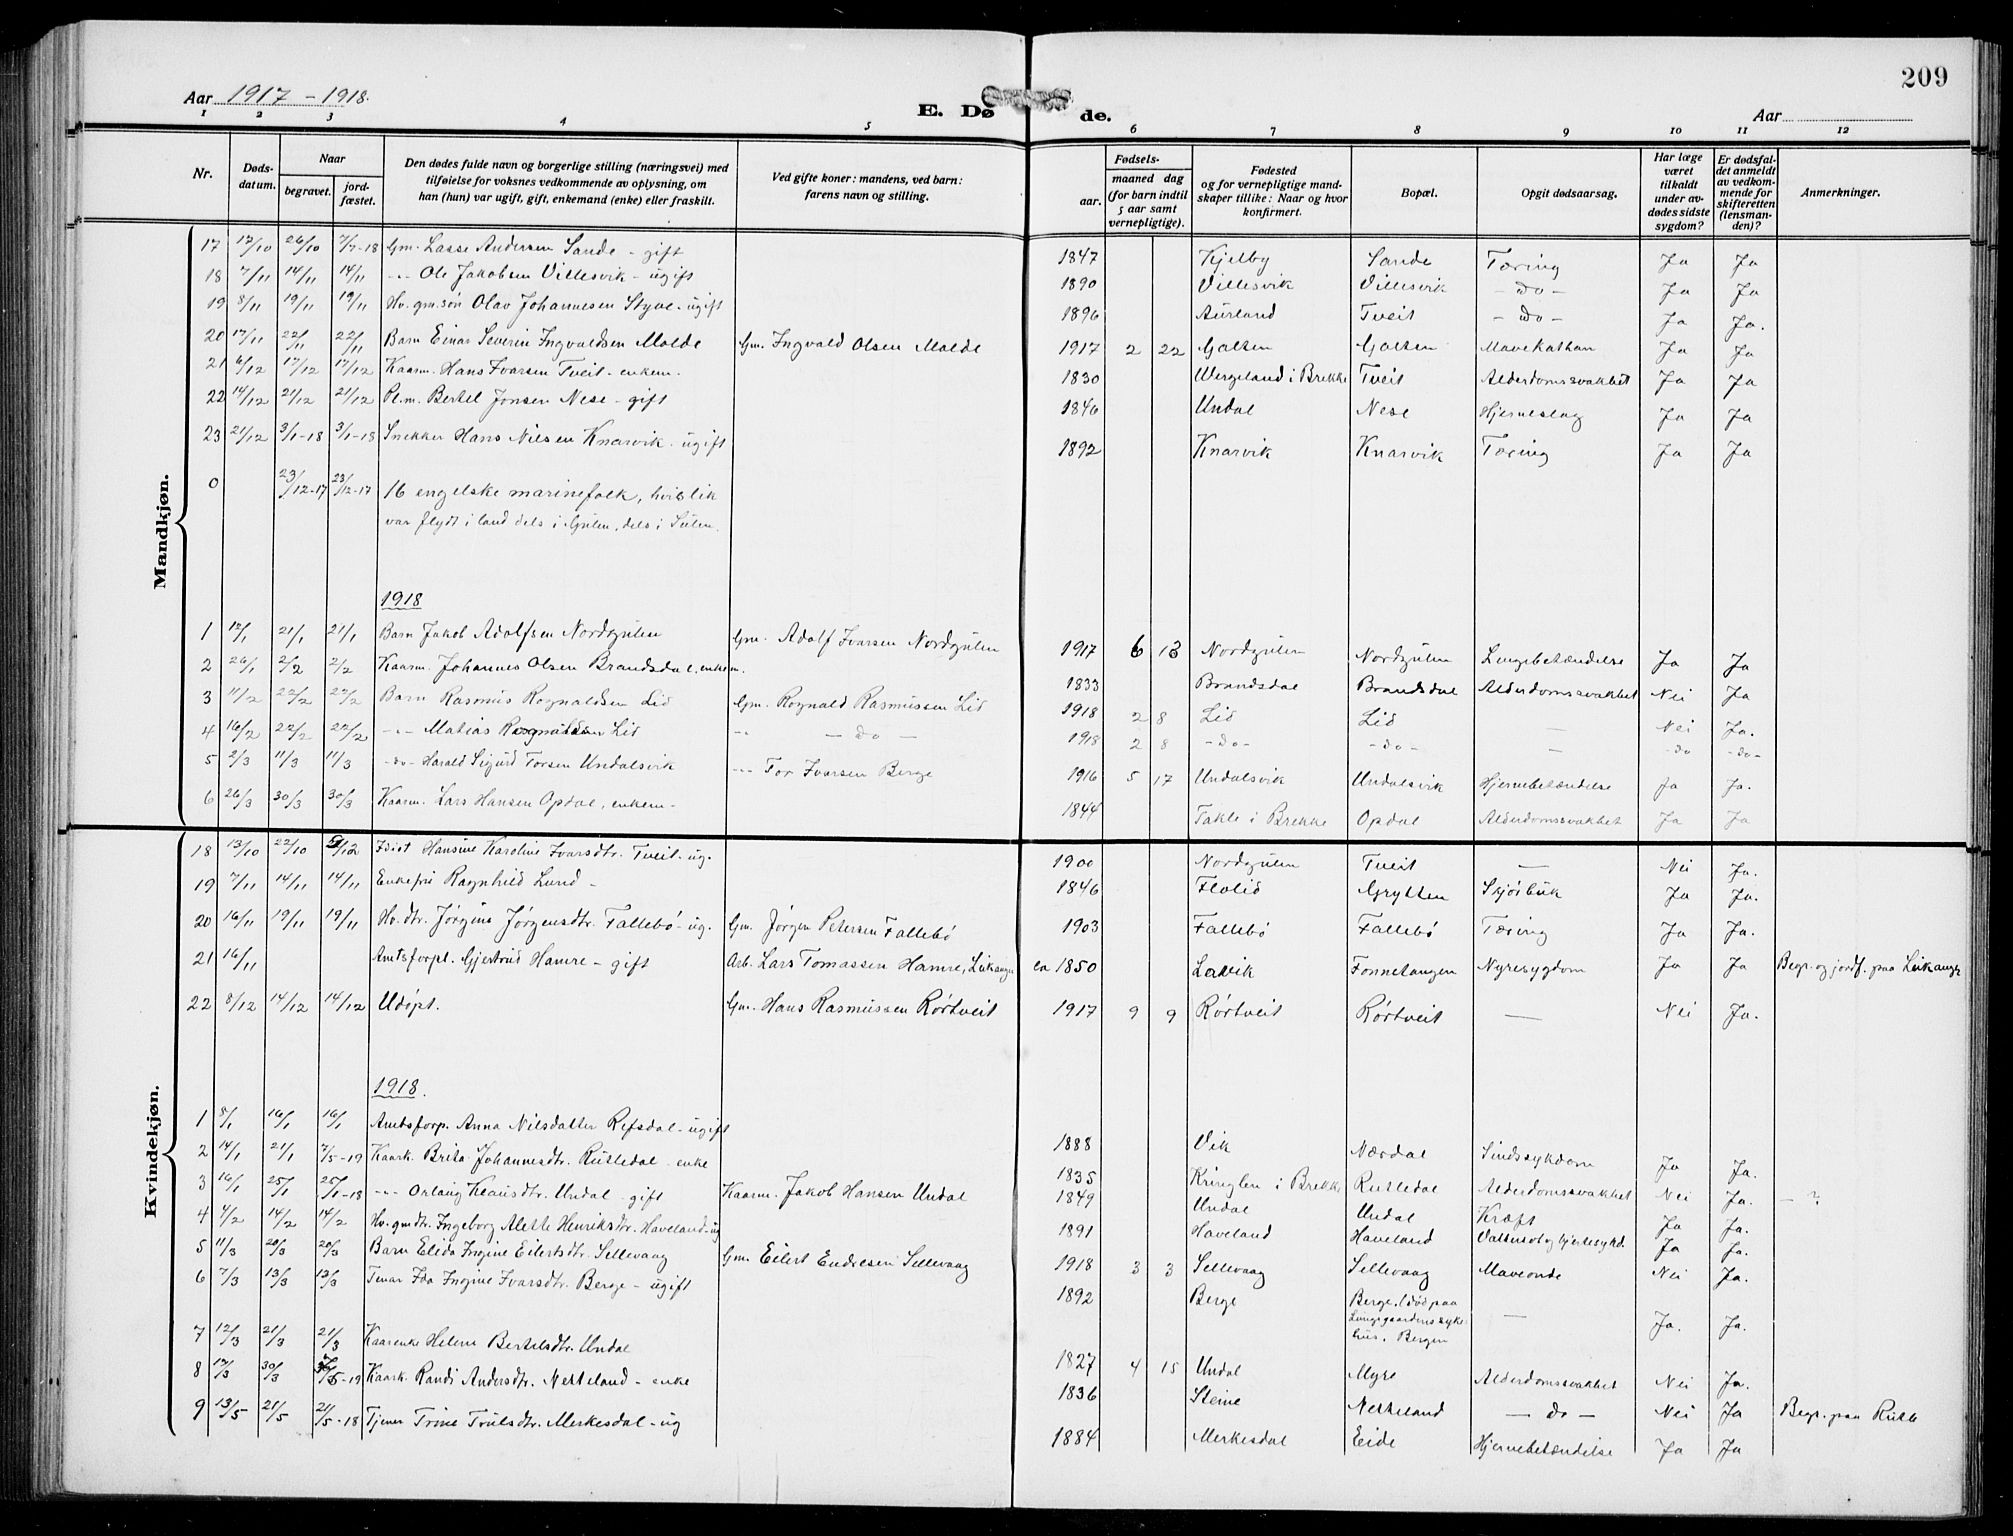 209
Aar 1917 - 1918.
E. Dø de.
Aar
1 2 3 4 5 6 7 8 9 10 11 12
Nr. Døds-datum. Naar begravet. jord-fæstet. Den dødes fulde navn og borgerlige stilling (næringsvei) med tilføielse for voksnes vedkommende av oplysning, om han (hun) var ugift, gift, enkemand (enke) eller fraskilt. Ved gifte koner: mandens, ved barn: farens navn og stilling. Fødsels- aar. maaned dag (for barn indtil 5 aar samt vernepligtige). Fødested og for vernepligtige mand-skaper tillike: Naar og hvor konfirmert. Bopæl. Opgit dødsaarsag. Har læge været tilkaldt under av-dødes sidste sygdom? Er dødsfal-det anmeldt av vedkom-mende for skifteretten (lensman-den)? Anmerkninger.
Mandkjøn.
17 17/10 26/10 7/7-18 Gm. Lasse Andersen Sande - gift 1847 Kjelby Sande Tæring Ja Ja
18 7/11 14/11 14/11 -"- Ole Jakobsen Villesvik - ugift 1890 Villesvik Villesvik - do - Ja Ja
19 8/11 19/11 19/11 Hv. gm.søn Olav Johannesen Styve - ugift 1896 Aurland Tveit - do - Ja Ja.
20 17/11 22/11 22/11 Barn Einar Severin Ingvaldsen Molde Gm. Ingvald Olsen Molde 1917 2 22 Galten Galten Mavekathar Ja Ja
21 6/12 17/12 17/12 Kaarm. Hans Ivarsen Tveit - enkem. 1830 Wergeland i Brekke Tveit Alderdomssvakhet Ja Ja
22 14/12 21/12 21/12 Pl.m. Bertel Jonsen Nese - gift 1846 Undal Nese Hjerneslag Ja Ja
23 21/12 3/1-18 3/1-18 Snekker Hans Nilsen Knarvik - ugift 1892 Knarvik Knarvik Tæring Ja Ja
0 23/12-17 23/12-17 16 engelske marinefolk, hvis lik
var flydt i land dels i Gulen, dels i Sulen.
1918
1 12/1 21/1 21/1 Barn Jakob Adolfsen Nordgulen Gm. Adolf Ivarsen Nordgulen 1917 6 13 Nordgulen Nordgulen Lungebetændelse Ja Ja
2 26/1 2/2 2/2 Kaarm. Johannes Olsen Brandsdal, enkem. 1833 Brandsdal Brandsdal Alderdomssvakhet Nei Ja
3 11/2 22/2 22/2 Barn Rasmus Rognaldsen Lid Gm. Rognald Rasmussen Lid 1918 2 8 Lid Lid — Nei Ja.
4 16/2 22/2 22/2 -"- Matias Rognaldsen Lid -"- - do - 1918 2 8 - do - - do - — - do - do -
5 2/3 11/3 11/3 - do - Harald Sigurd Torsen Undalsvik -"- Tor Ivarsen Berge 1916 5 17 Undalsvik Undalsvik Hjernebetændelse Ja Ja.
6 26/3 30/3 30/3 Kaarm. Lars Hansen Opdal, enkem - 1844 Takle i Brekke Opdal Alderdomssvakhet Ja Ja
Kvindekjøn.
18 13/10 22/10 /12 Idiot Hansine Karoline Ivarsdtr. Tveit - ug. 1900 Nordgulen Tveit — Nei Ja.
19 7/11 14/11 14/11 Enkefru Ragnhild Lund - 1846 Flolid Grytten Skjørbuk Ja Ja.
20 16/11 19/11 19/11 Hv. dtr. Jørgine Jørgensdtr. Fallebø - ug. Gm. Jørgen Petersen Fallebø 1903 Fallebø Fallebø Tæring Ja Ja.
21 16/11 Amtsforpl. Gjertrud Hamre - gift Arb. Lars Tomassen Hamre, Leikanger ca 1850 Lavik Fonnetangen Nyresygdom Ja Ja Begr. og jordf. paa Leikanger
22 8/12 14/12 14/12 Udøpt. Gm. Hans Rasmussen Rørtveit 1917 9 9 Rørtveit Rørtveit — Nei Ja.
1918.
1 8/1 16/1 16/1 Amtsforp. Anna Nilsdatter Refsdal - ugift 1888 Vik Nærdal Sindssykdom Ja Ja.
2 14/1 21/1 7/5-19 Kaark. Brita Johannesdtr. Rutledal - enke 1835 Kringlen i Brekke Rutledal Alderdomssvakhet Nei Ja. - ?
3 16/1 25/1 25/1-18 -"- Orlaug Klausdtr. Undal - gift Kaarm. Jakob Hansen Undal 1849 Undal Undal Kræft Ja Ja.
4 4/2 14/2 14/2 Hv. gmdtr. Ingeborg Alette Henriksdtr. Haveland - ug 1891 Haveland Haveland Vattersot og hjertesykd. Ja Ja.
5 11/3 20/3 20/3 Barn Elida Ingine Eilertsdtr. Sellevaag Gm. Eilert Endresen Sellevaag 1918 3 3 Sellevaag Sellevaag Maveonde Nei Ja.
6 7/3 13/3 13/3 Tenar Ida Ingine Ivarsdtr. Berge - ugift 1892 Berge Berge. (død paa Lungegaardens syke-hus. Bergen — Ja. Ja.
7 12/3 21/3 21/3 Kaarenke Helene Bertelsdtr. Undal 1827 4 15 Undal Myre Alderdomssvakhet Nei Ja.
8 17/3 30/3 /5-19 Kaark. Randi Andersdtr. Nekkeland - enke 1836 Steine Nekkeland - do - Nei Ja Begr. paa
9 13/5 21/5 21/5-18 Tjener Trine Trulsdtr. Merkesdal - ug 1884 Merkesdal Eide Hjernebetændelse Ja Ja